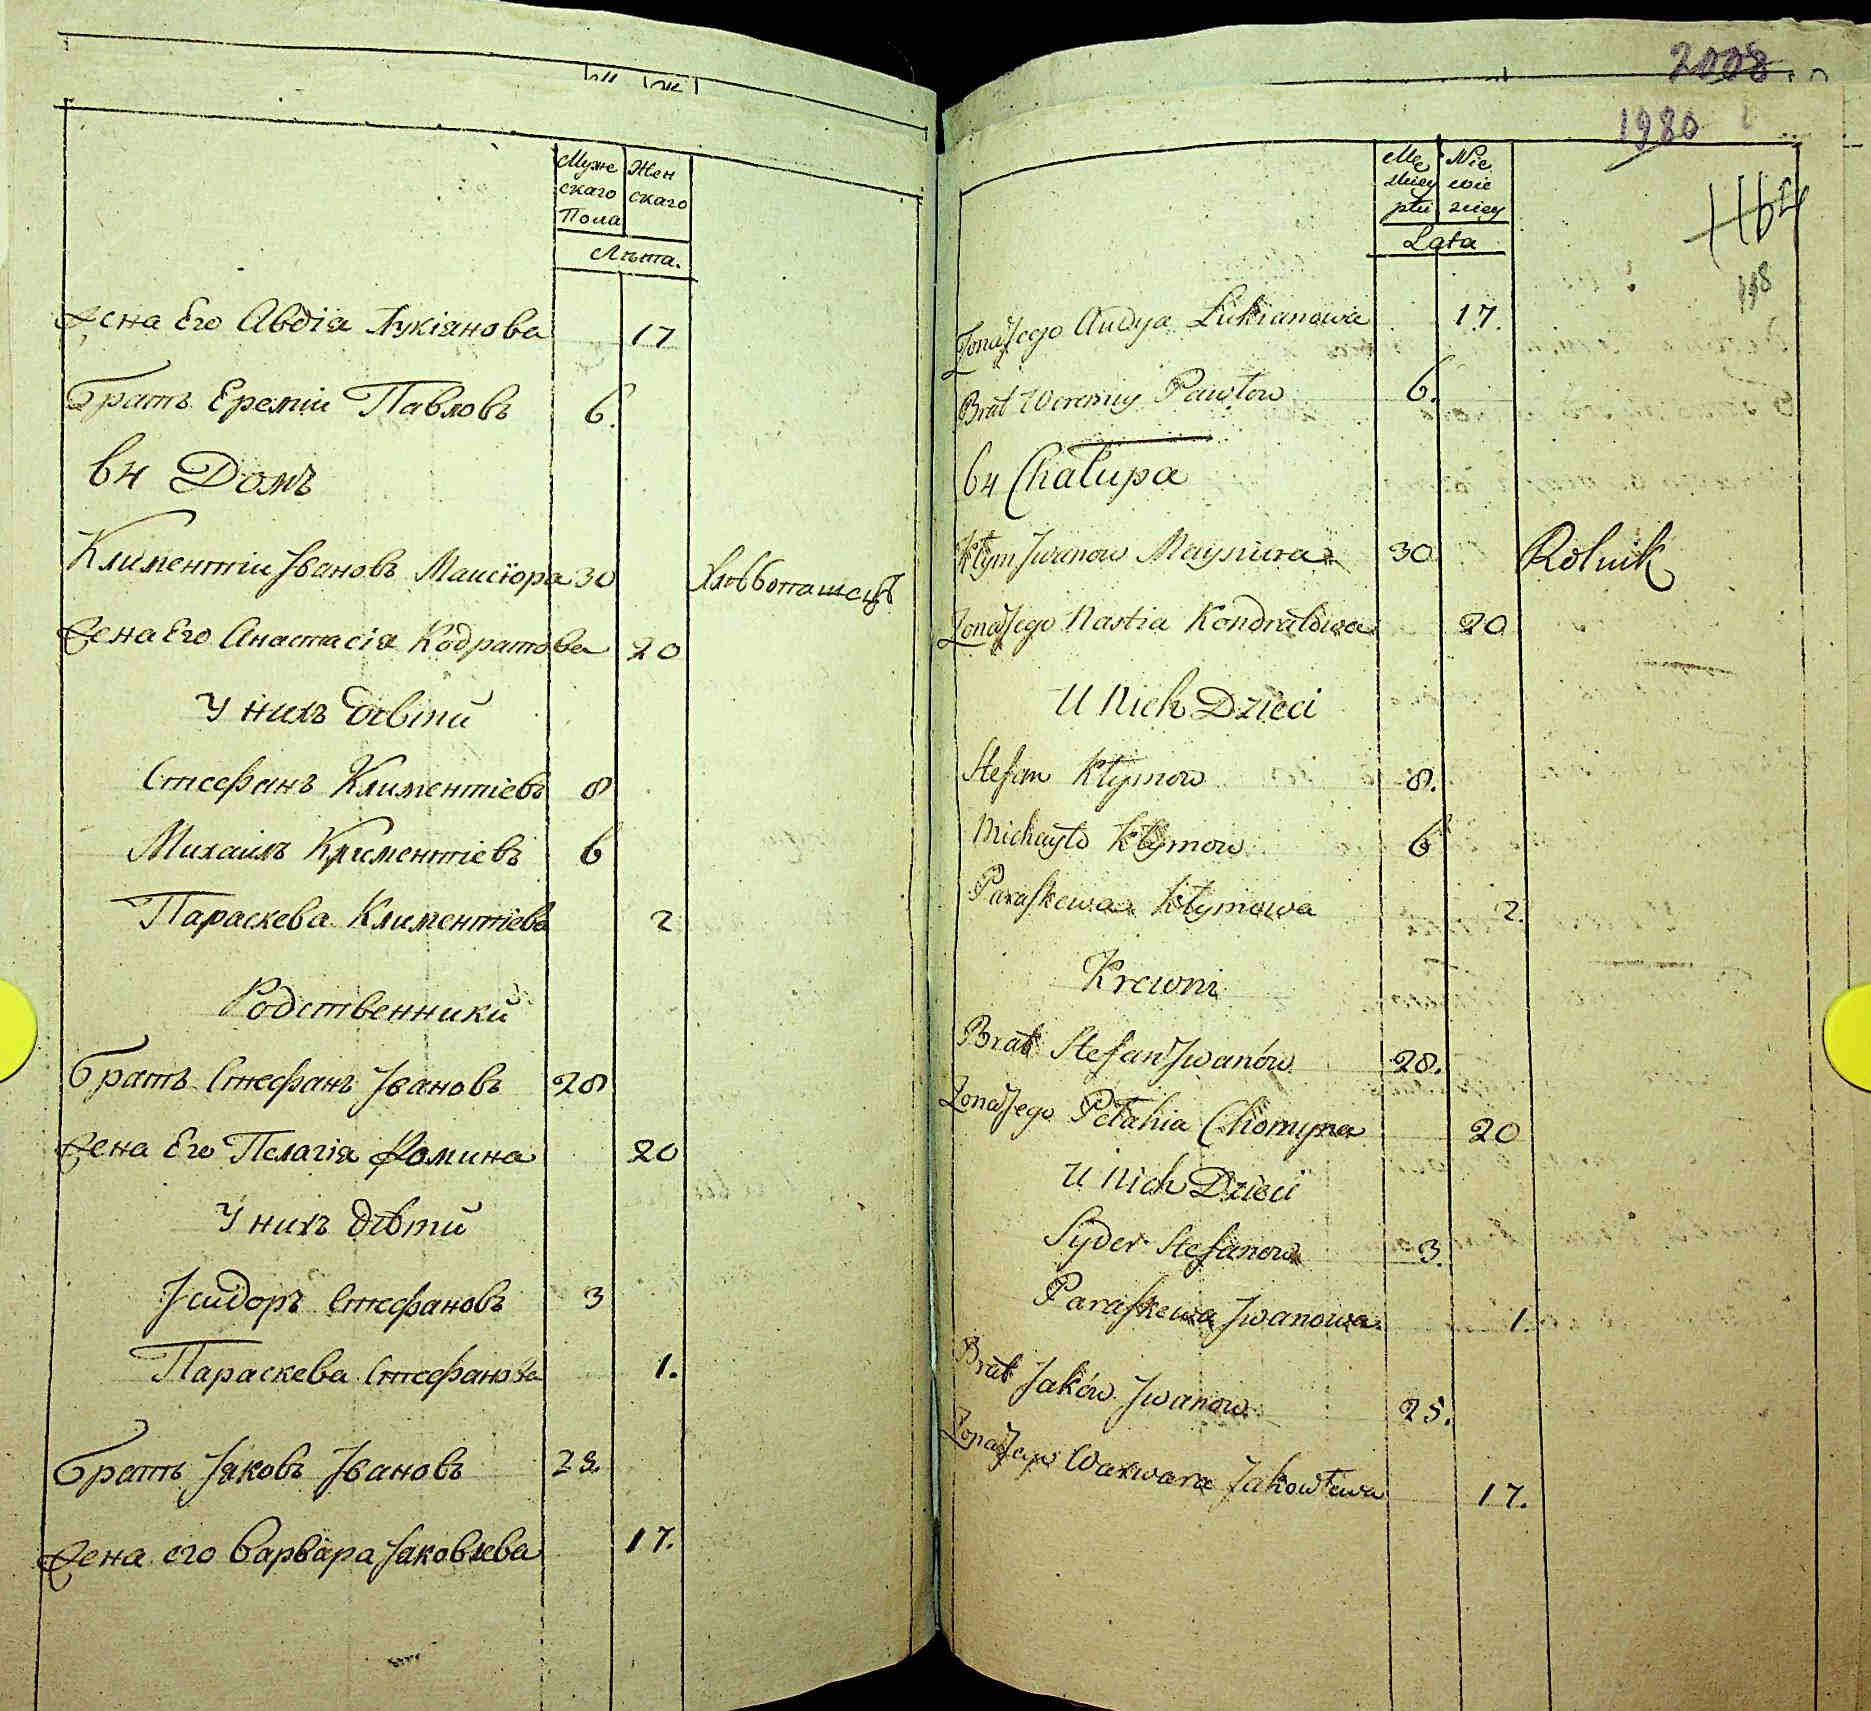 Муже
скаго
Пола
Жен
скаго
Лѣта.
Жена Его Авдія Лукіянова 17
Братъ Еремій Павловъ 6.
64 Домъ
Климентій Івановъ Маисюра 30 Хлѣбопашецъ
Жена Его Анастасія Кодратова 20
У нихъ дѣтй
Стефанъ Климентіевъ 8
Михаилъ Климентіевъ 6
Параскева Климентіева 2
Родственники
Братъ Стефанъ Івановъ 28
Жена Его Пелагія Фомина 20
У нихъ дѣтй
Ісидоръ Стефановъ 3
Параскева Стефанова 1.
Братъ Іяковъ Івановъ
Жена его Варвара Іаковлева 17.
2008
1980
Lata
Żona Jego Audya Łukianowa 17.
Brat Weremiy Pawłow 6.
64 Chałupa
Kłym Jwanow Maysiura 30 Rolnik
Żona Jego Nastia Kondratowa 20
U Nich Dzieci
Stefan Kłymow 8.
Michayło Kłymow 6
Paraskewa Kłymowa 2.
Krewni
Brat Stefan Jwanów 28.
Żona Jego Pełahia Chomyna 20
U Nich Dzieci
Syder Stefanow 3.
Paraskewa Jwanowa 1.
Brat Jaków Jwanow 25.
Żona Jego Warwara Jakowłewa 17.